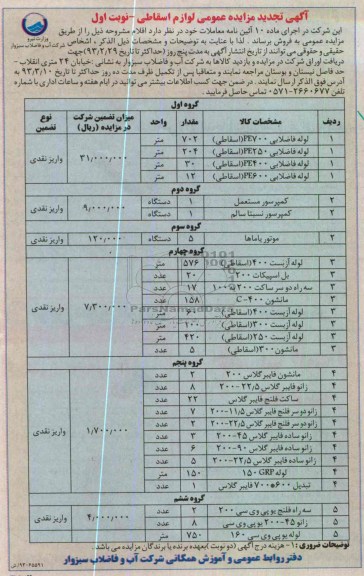 آگهی تجدید مزایده عمومی لوازم اسقاطی -نوبت اول
این شرکت در اجرای ماده ۱۰ آئین نامه معاملات خود در نظر دارد اقلام مشروحه ذیل را از طریق
مزایده عمومی به فروش برساند . لذا با عنایت به توضیحات و مشخصات ذیل الذکر ، اشخاص
حقیقی و حقوقی می توانند از تاریخ انتشار آگهی به مدت پنج روز (حداکثر تا تاریخ ۹۳/۲/۲۹) جهت
دریافت اوراق شرکت در مزایده و بازدید کالاها به شرکت آب و فاضلاب سبزوار به نشانی: خیابان ۲۴ متری انقلاب -
حد فاصل نیستان و بوستان مراجعه نمایند و متعاقبا پس از تکمیل ظرف مدت ده روز حداکثر تا تاریخ ۹۳/۳/۱۰ به
آدرس فوق الذکر ارسال نمایند . در ضمن جهت کسب اطلاعات بیشتر می توانید در ایام هفته و ساعات اداری با شماره
تلفن ۲۶۶۰۶۷۷-۰۵۷۱ تماس حاصل فرمایید .
شرکت آب و فاضلاب سبزوار
ردیف مشخصات کالا مقدار واحد میزان تضمین شرکت در مزایده (ریال) نوع تضمین
گروه اول
۱ لوله فاضلابی PE۷۰۰(اسقاطی) ۷۰۲ متر
۱ لوله فاضلابی PE۲۵۰(اسقاطی) ۲۰۴ متر
۱ لوله فاضلابی PE۴۰۰(اسقاطی) ۳۰ متر
۱ لوله فاضلابی PE۶۰۰(اسقاطی) ۱۲ متر
۳۱,۰۰۰,۰۰۰ واریز نقدی
گروه دوم
۲ کمپرسور مستعمل ۱ دستگاه
۲ کمپرسور نسبتا سالم ۱ دستگاه
۹,۰۰۰,۰۰۰ واریز نقدی
گروه سوم
۲ موتور یاماها ۵ دستگاه ۱۲۰,۰۰۰ واریز نقدی
گروه چهارم
۳ لوله آزبست ۴۰۰(اسقاطی) ۵۷۶ متر
۳ بل اسپیکات ۲۰۰ ۲۰ عدد
۳ سه راه دو سر ساکت ۲۰۰ به ۱۰۰ ۱۷ عدد
۳ مانشون C-۴۰۰ ۱۵۸ عدد
۳ لوله آزبست ۴۰۰(اسقاطی) ۶۰ متر
۳ لوله آزبست ۳۰۰(اسقاطی) ۱۰۰ متر
۳ لوله آزبست ۲۵۰(اسقاطی) ۴۲۰ متر
۳ مانشون ۳۰۰(اسقاطی) ۵ عدد
۷,۳۰۰,۰۰۰ واریز نقدی
گروه پنجم
۴ مانشون فایبر گلاس ۲۰۰ ۲ عدد
۴ زانو فایبر گلاس ۲۲/۵-۲۰۰ ۸ عدد
۴ ساکت فلنج فایبر گلاس ۲۲ عدد
۴ زانو دو سر فلنج فایبر گلاس ۱۱/۵-۲۰۰ ۷ عدد
۴ زانو دو سر فلنج فایبر گلاس ۲۲/۵-۲۰۰ ۲ عدد
۴ زانو ساده فایبر گلاس ۴۵-۲۰۰ ۳ عدد
۴ زانو ساده فایبر گلاس ۹۰-۲۰۰ ۶ عدد
۴ زانو ساده فایبر گلاس ۲۲/۵-۲۰۰ ۵ عدد
۴ لوله GRP ۱۵۰ ۱۵۰ متر
۴ تبدیل ۶۰۰*۷۰۰ فایبر گلاس ۱ عدد
۱,۷۰۰,۰۰۰ واریز نقدی
گروه ششم
۵ سه راه فلنج یو پی وی سی ۲۰۰ ۲ عدد
۵ زانو ۴۵-۲۰۰ یو پی وی سی ۸ عدد
۵ لوله یو پی وی سی ۱۶۰ ۷۵۰ متر
۴,۰۰۰,۰۰۰ واریز نقدی
توضیحات ضروری :۱- هزینه درج آگهی (دو نوبت) بعهده برنده یا برندگان مزایده می باشد.
دفتر روابط عمومی و آموزش همگانی شرکت آب و فاضلاب سبزوار